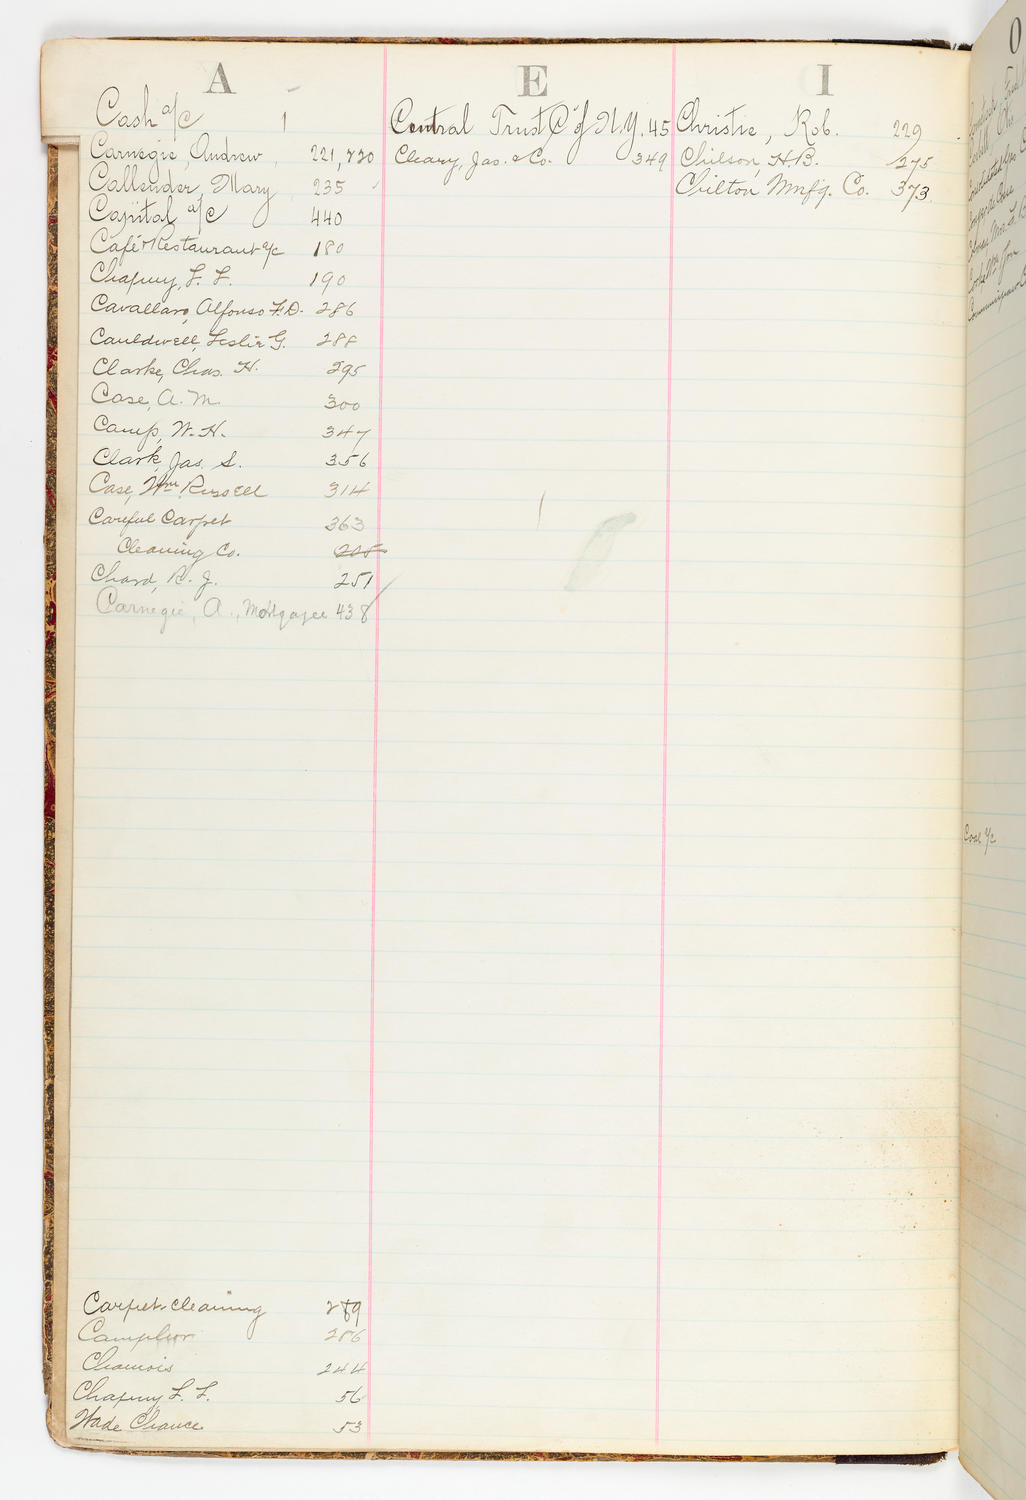 A
Cash a/c 1
Carnegie, Andrew, 221, 720
Callender, Mary 235
Capital a/c 440
Café & Restaurant a/c 180
Chapuy, F. F. 190
Cavallaro, Alfonso F.D. 286
Cauldwell, Leslie G. 288
Clarke, Chas. H. 295
Case, A. M. 300
Camp, W. H. 347
Clark, Jas. S. 356
Case, Wm Russell 314
Careful Carpet 363
Cleaning Co. 205
Chard, R. J. 251
Carnegie, A., Mortgagee 438
Carpet-cleaning 289
Camphor 286
Chamois 244
Chapuy F. F. 56
Wade Chance 53
E
Central Trust Co of N.Y. 45
Cleary, Jas. & Co. 349
I
Christie, Rob. 229
Chilson, H.B. 275
Chilton Mnfg. Co. 373
O
Coal a/c